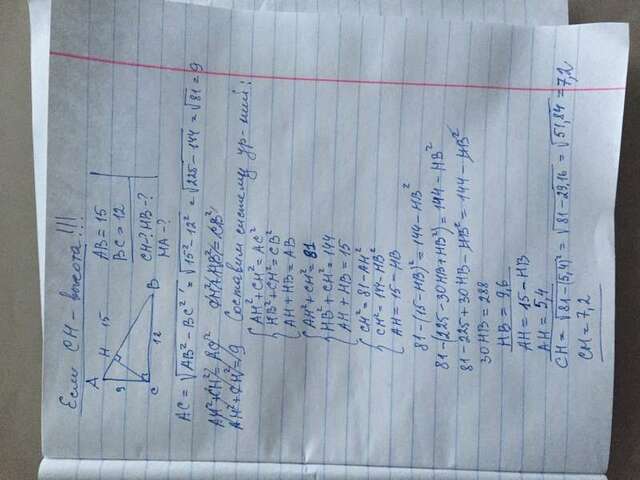 Если CH – высота!!!
A
H 15 AB = 15
9 BC = 12
C 12 B CH-? HB-?
HA-?
AC = √AB² − BC² = √15² − 12² = √225 − 144 = √81 = 9
AH² + CH² = AC² CH² + HB² = CB²
AH² + CH² = 9 Составим систему ур-ний:
AH² + CH² = AC²
HB² + CH² = CB²
AH + HB = AB
AH² + CH² = 81
HB² + CH² = 144
AH + HB = 15
CH² = 81 − AH²
CH² = 144 − HB²
AH = 15 − HB
81 − (15 − HB)² = 144 − HB²
81 − (225 − 30HB + HB²) = 144 − HB²
81 − 225 + 30HB − HB² = 144 − HB²
30HB = 288
HB = 9,6
AH = 15 − HB
AH = 5,4
CH = √81 − (5,4)² = √81 − 29,16 = √51,84 = 7,2
CH = 7,2